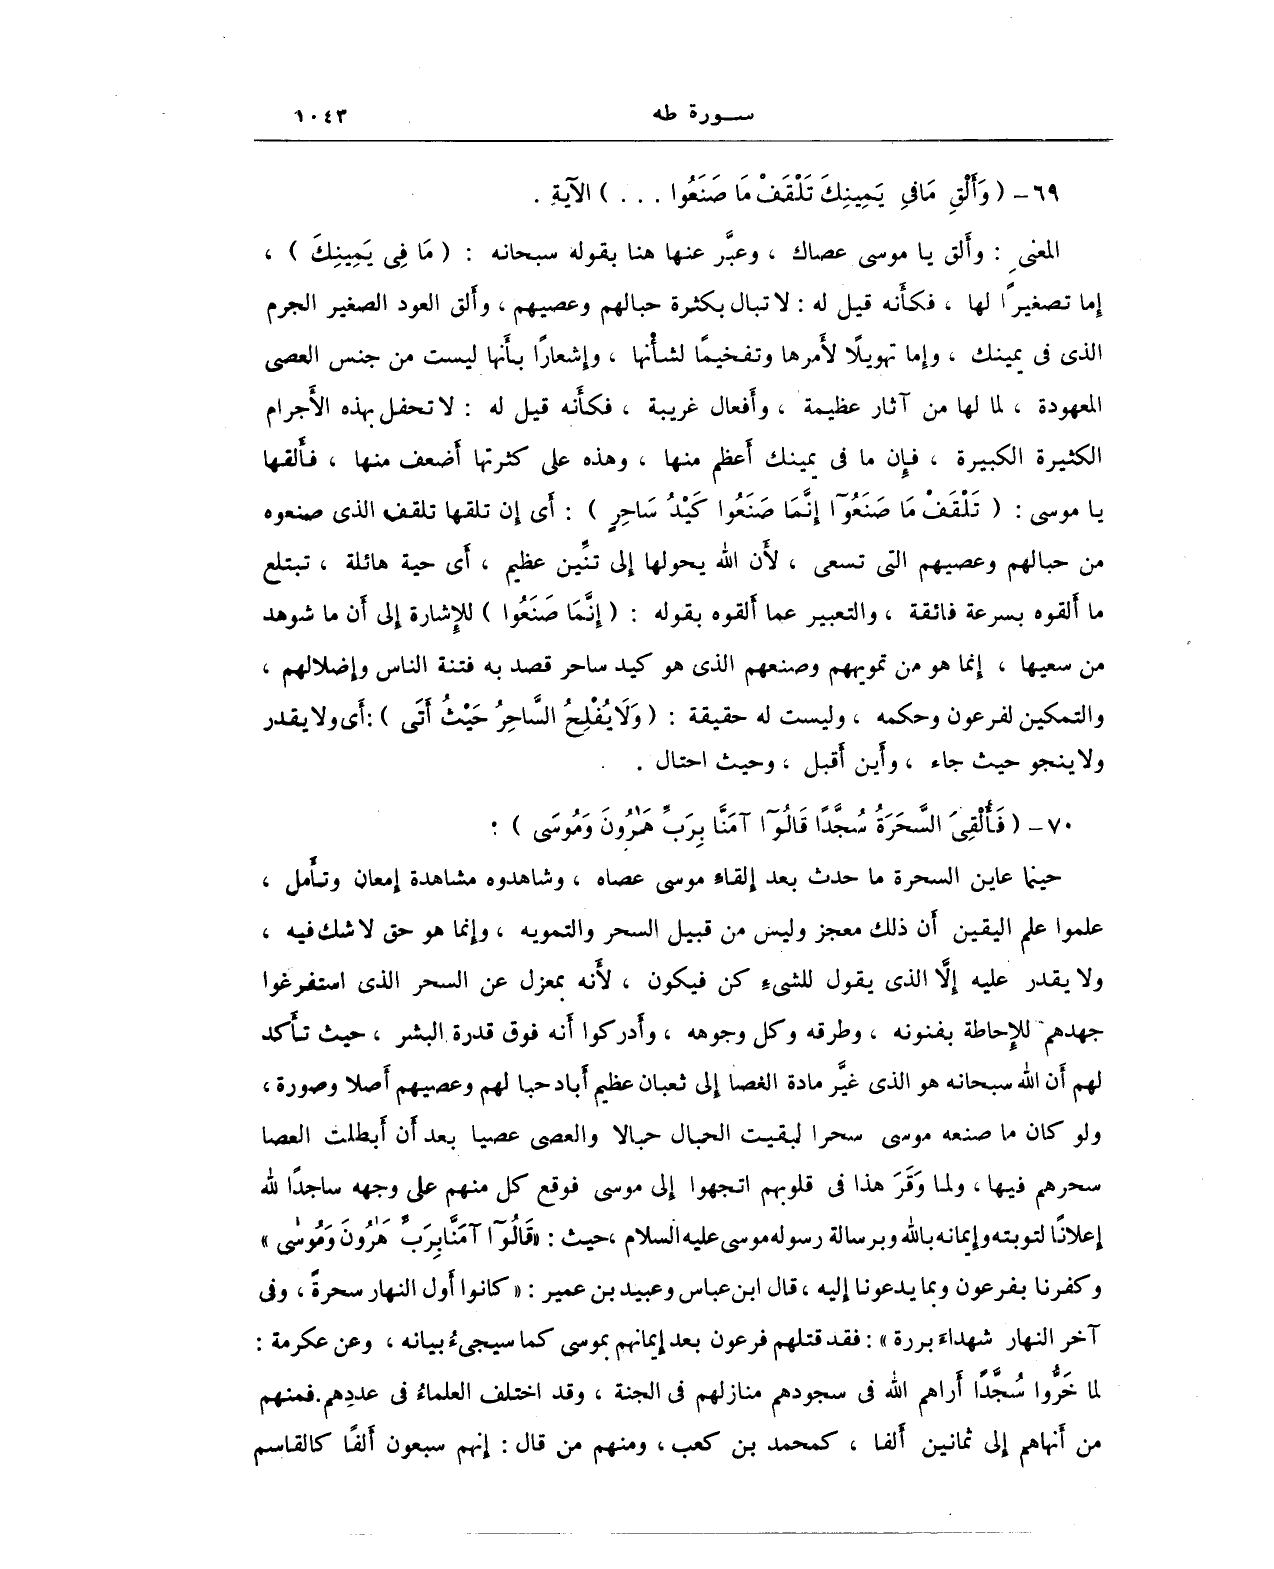 سورة طه ١٠٤٣
٦٩ - ( وَأَلْقِ مَافِي يَمِينِكَ تَلْقَفْ مَا صَنَعُوا . . . ) الآيةِ .
المعنى : وأَلق يا موسى عصاك ، وعبَّر عنها هنا بقوله سبحانه : ( مَا فِي يَمِينِكَ ) ،
إما تصغيرًا لها ، فكأَنه قيل له : لا تبال بكثرة حبالهم وعصيهم ، وأَلق العود الصغير الجرم
الذى فى يمينك ، وإما تهويلًا لأَمرها وتفخيمًا لشأْنها ، وإشعارًا بأَنها ليست من جنس العصى
المعهودة ، لما لها من آثار عظيمة ، وأَفعال غريبة ، فكأَنه قيل له : لا تحفل بهذه الأَجرام
الكثيرة الكبيرة ، فإن ما فى يمينك أَعظم منها ، وهذه على كثرتها أَضعف منها ، فأَلقها
يا موسى : ( تَلْقَفْ مَا صَنَعُوٓا إِنَّمَا صَنَعُوا كَيْدُ سَاحِرٍ ) : أَى إن تلقها تلقف الذى صنعوه
من حبالهم وعصيهم التى تسعى ، لأَن الله يحولها إلى تنِّين عظيم ، أَى حية هائلة ، تبتلع
ما أَلقوه بسرعة فائقة ، والتعبير عما أَلقوه بقوله : ( إِنَّمَا صَنَعُوا ) للإِشارة إلى أَن ما شوهد
من سعيها ، إنما هو من تمويههم وصنعهم الذى هو كيد ساحر قصد به فتنة الناس وإضلالهم ،
والتمكين لفرعون وحكمه ، وليست له حقيقة : ( وَلَا يُفْلِحُ السَّاحِرُ حَيْثُ أَتَى ) : أَى ولا يقدر
ولا ينجو حيث جاء ، وأَين أَقبل ، وحيث احتال .
٧٠ - ( فَأُلْقِيَ السَّحَرَةُ سُجَّدًا قَالُوٓا آمَنَّا بِرَبِّ هَـٰرُونَ وَمُوسَى ) :
حينما عاين السحرة ما حدث بعد إلقاء موسى عصاه ، وشاهدوه مشاهدة إمعان وتأَمل ،
علموا علم اليقين أَن ذلك معجز وليس من قبيل السحر والتمويه ، وإنما هو حق لا شك فيه ،
ولا يقدر عليه إلَّا الذى يقول للشىءِ كن فيكون ، لأَنه بمعزل عن السحر الذى استفرغوا
جهدهم للإِحاطة بفنونه ، وطرقه وكل وجوهه ، وأَدركوا أَنه فوق قدرة البشر ، حيث تأَكد
لهم أَن الله سبحانه هو الذى غيَّر مادة الغصا إلى ثعبان عظيم أَباد حبا لهم وعصيهم أَصلا وصورة ،
ولو كان ما صنعه موسى سحرا لبقيت الحبال حبالا والعصى عصيا بعد أَن أَبطلت العصا
سحرهم فيها ، ولما وَقَرَ هذا فى قلوبهم اتجهوا إلى موسى فوقع كل منهم على وجهه ساجدًا لله
إعلانًا لتوبته وإيمانه بالله وبرسالة رسوله موسى عليه السلام ، حيث : «قَالُوٓا آمَنَّا بِرَبِّ هَـٰرُونَ وَمُوسَىٰ»
وكفرنا بفرعون وبما يدعونا إليه ، قال ابن عباس وعبيد بن عمير : «كانوا أَول النهار سحرةً ، وفى
آخر النهار شهداءَ بررة» : فقد قتلهم فرعون بعد إيمانهم بموسى كما سيجىءُ بيانه ، وعن عكرمة :
لما خَرُّوا سُجَّدًا أَراهم الله فى سجودهم منازلهم فى الجنة ، وقد اختلف العلماءُ فى عددِهم.فمنهم
من أَنهاهم إلى ثمانين أَلفا ، كمحمد بن كعب ، ومنهم من قال : إنهم سبعون أَلفًا كالقاسم